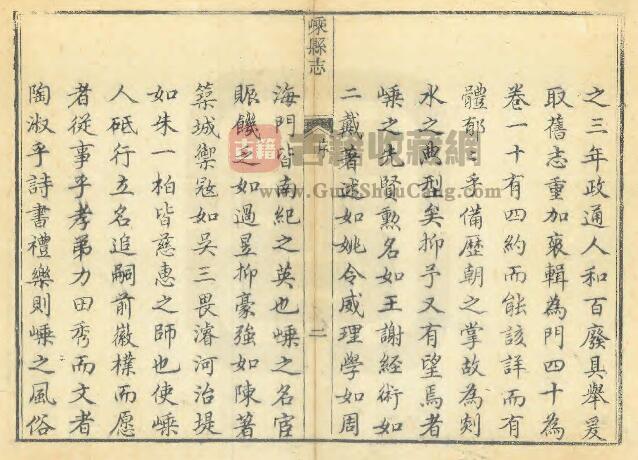 之三年政通人和百廢具舉爰
取舊志重加裒輯為門四十為
卷一十有四約而能該詳而有
體郁〻乎備歷朝之掌故為剡
水之典型矣抑予又有望焉者
嵊之先賢勲名如王謝經術如
二戴著述如姚令威理學如周
嵊縣志
序
二
海門皆南紀之英也嵊之名宦
賑饑之如過昱抑豪強如陳著
築城禦寇如吳三畏濬河治堤
如朱一柏皆慈惠之師也使嵊
人砥行立名追嗣前徽樸而愿
者從事乎孝弟力田秀而文者
陶淑乎詩書禮樂則嵊之風俗
古籍
古籍收藏網
www.GuJiShouCang.com